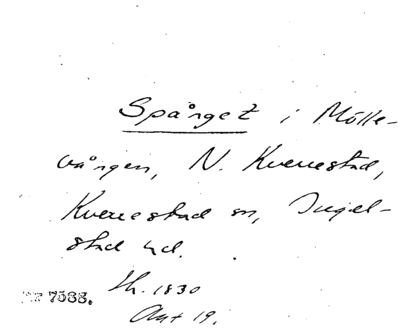 Spånget i Mölle-
vången, N. Kverrestad,
Kverrestad sn, Ingel-
stad hd.
Sh. 1830
Akt 19.
7588.